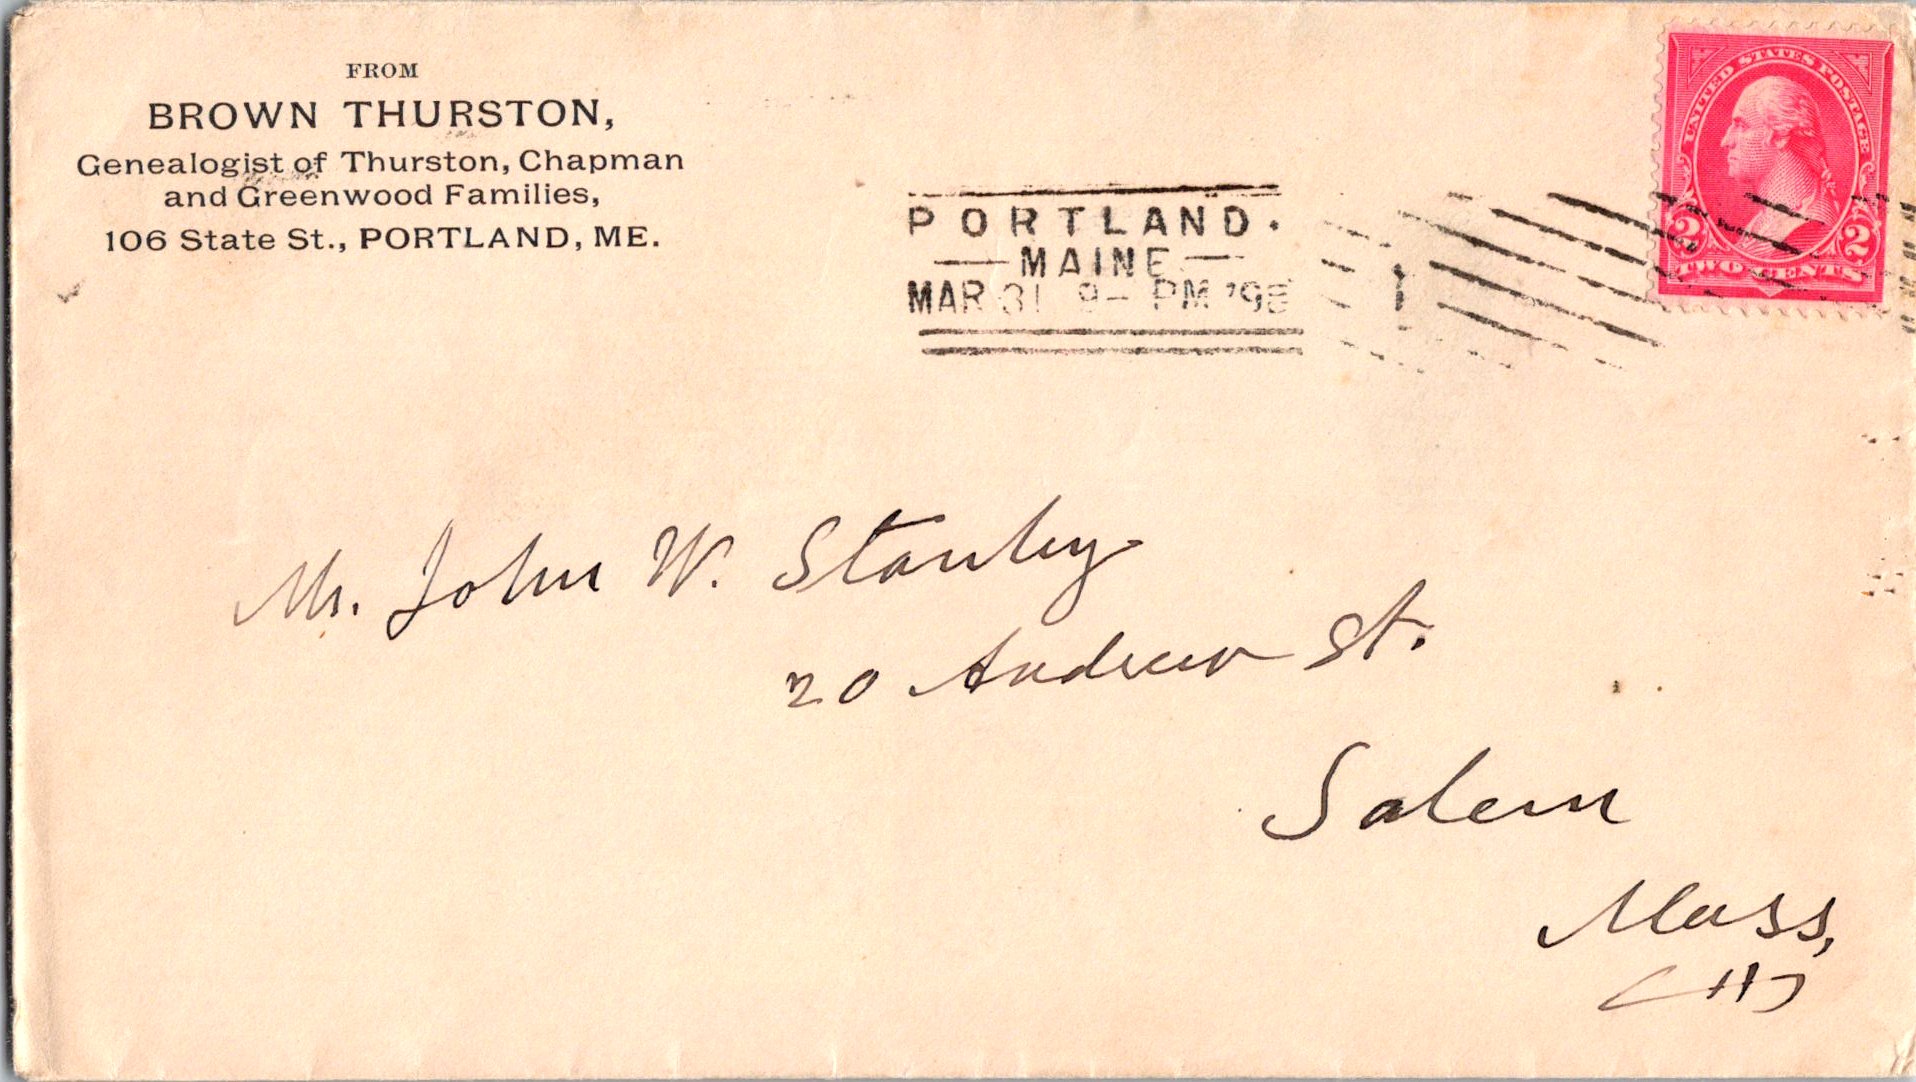 FROM
BROWN THURSTON,
Genealogist of Thurston, Chapman
and Greenwood Families,
106 State St., PORTLAND, ME.
PORTLAND.
MAINE
MAR 31 9- PM
UNITED STATES POSTAGE
2 2
TWO CENTS
Mr. John W. Stanley
20 Andrew St.
Salem
Mass,